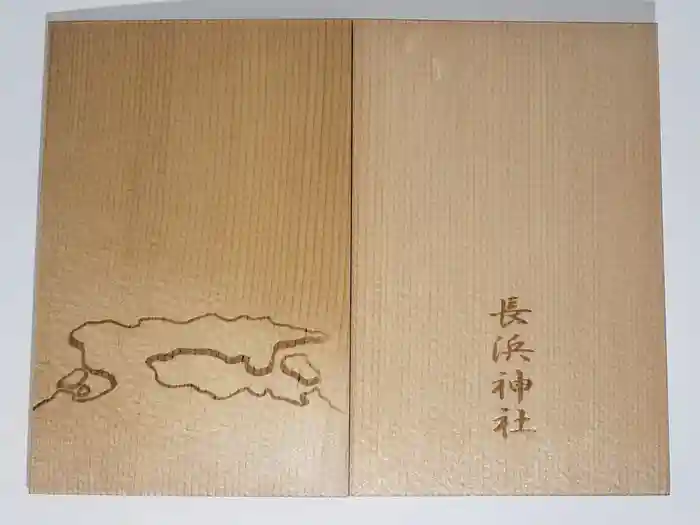 長浜神社